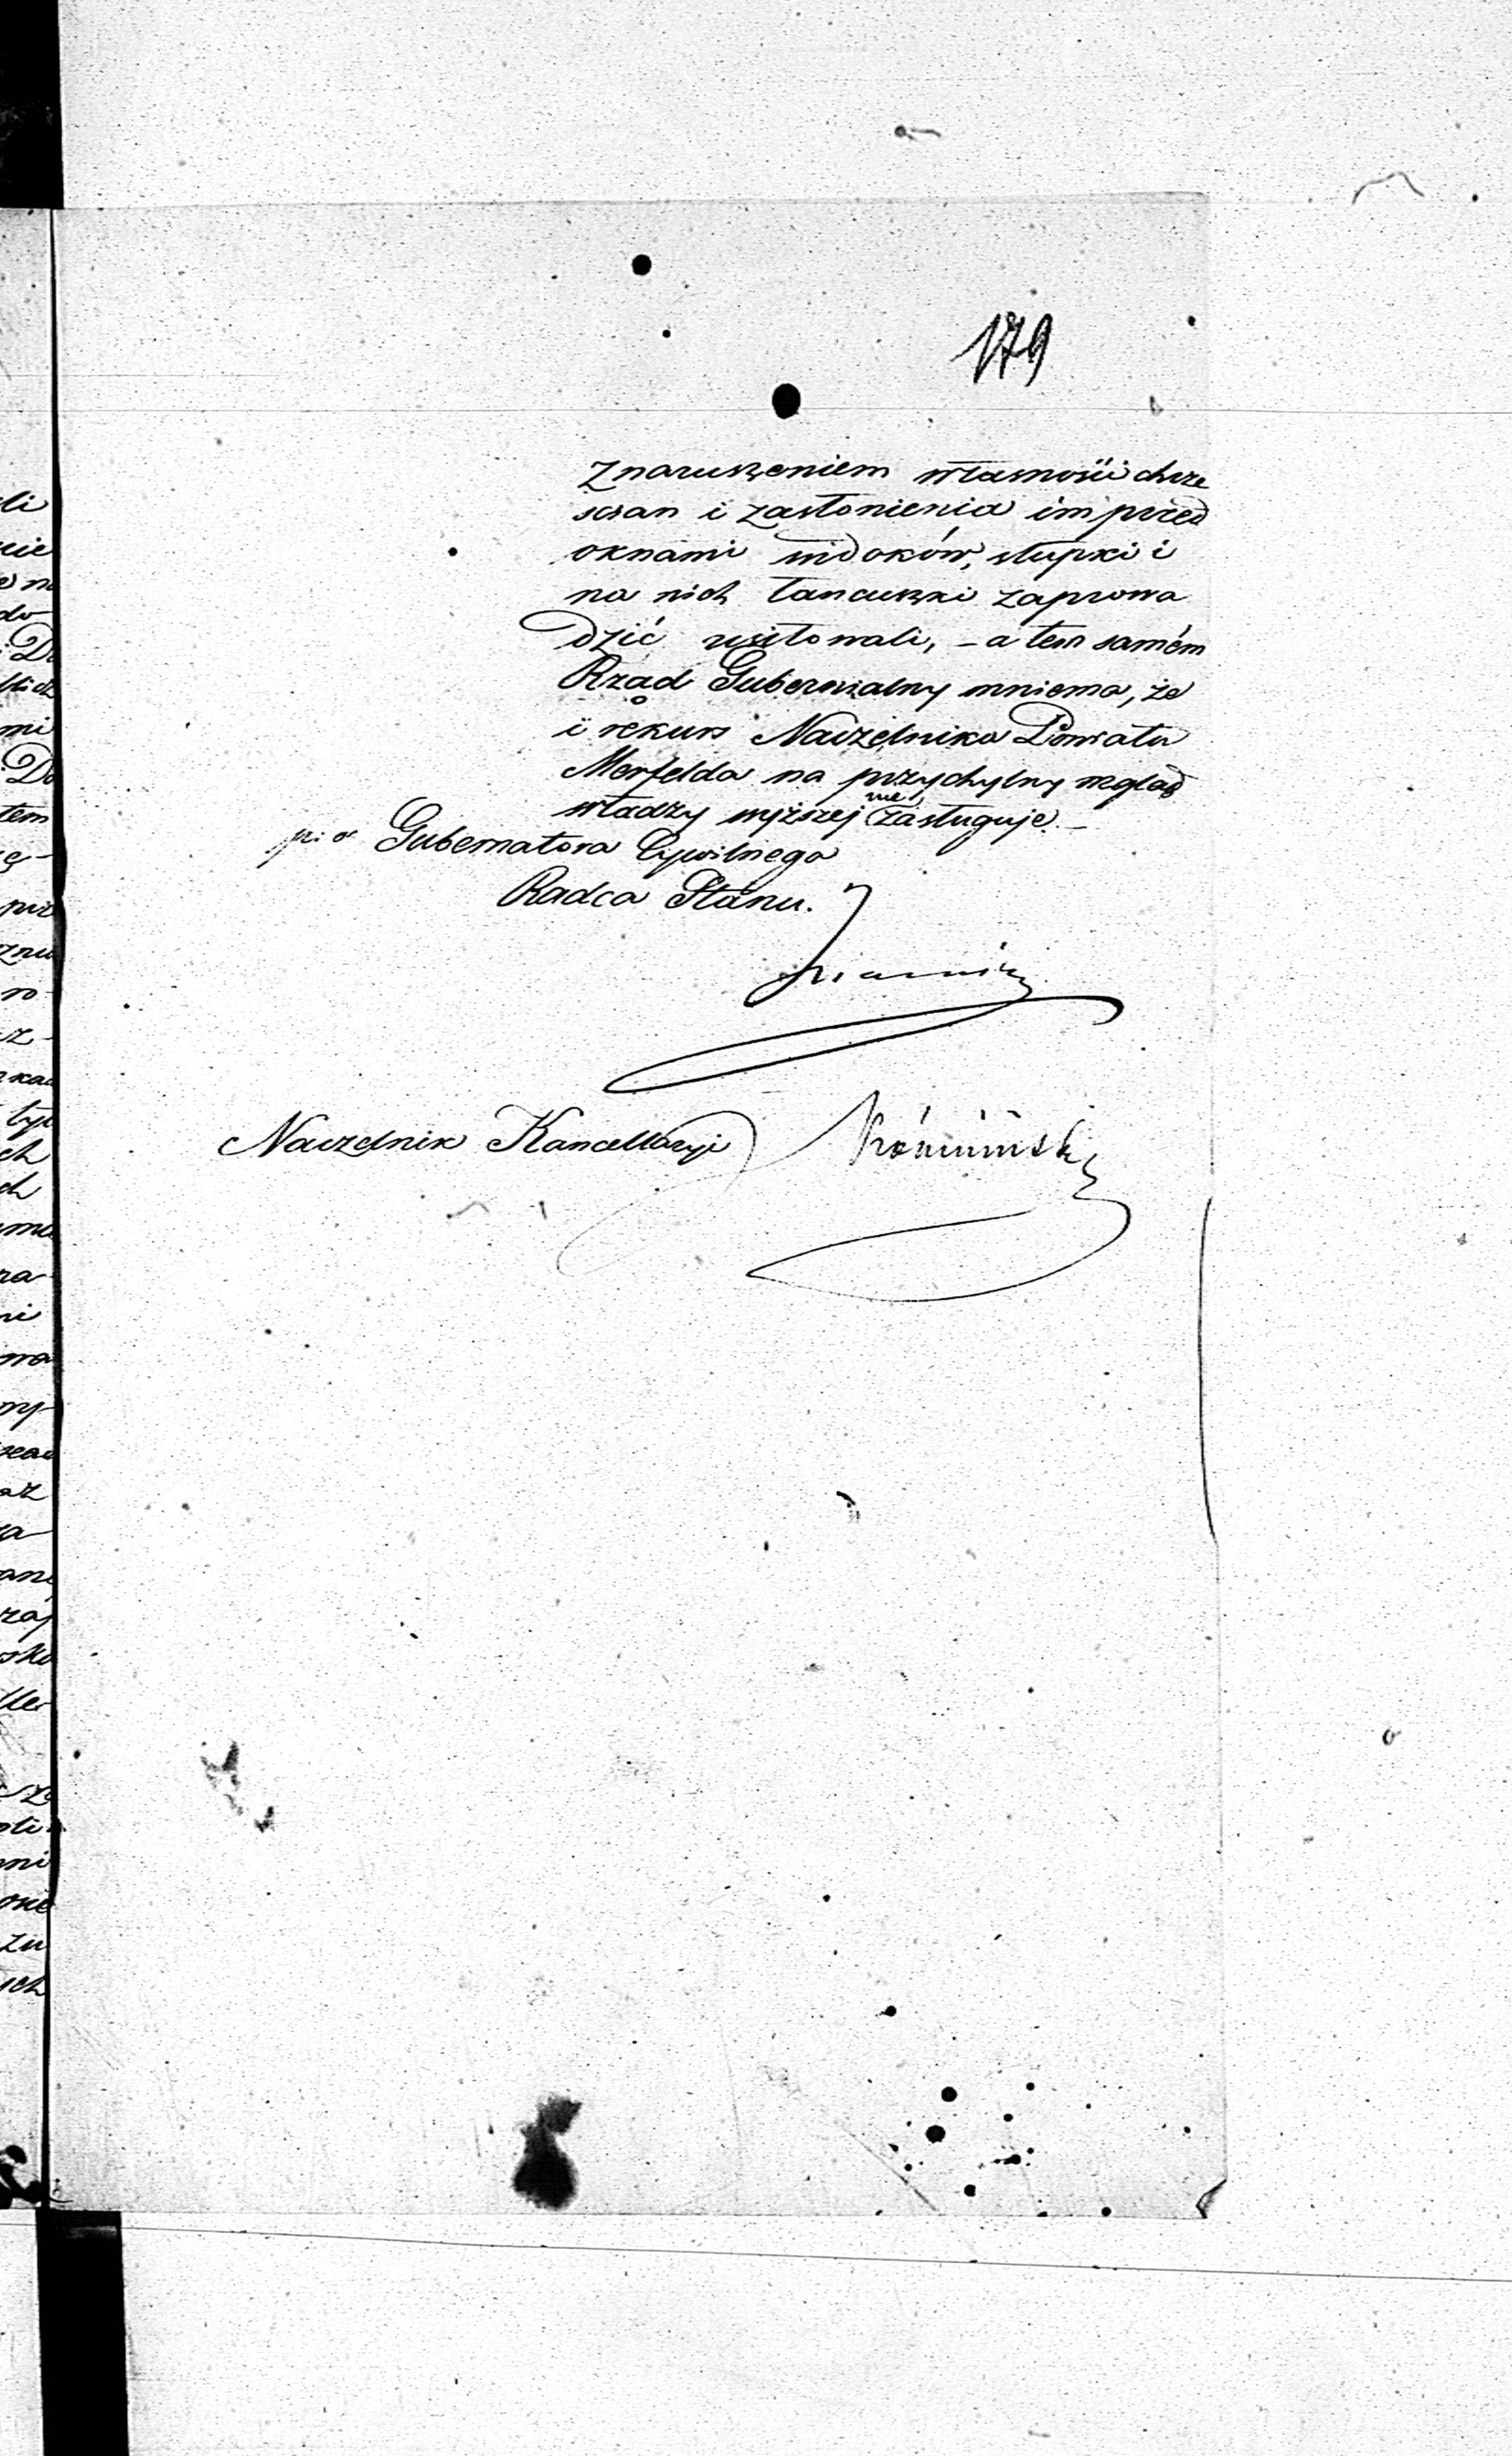 179
z naruszeniem własności chrze
ścian i zasłonienia im przed
oknami widoków, słupki i
na nich łancuszki zaprowa
dzić usiłowali, - a tem samém
Rząd Gubernialny mniema, że
i rekurs Naczelnika Powiatu
Merfelda na przychylny wzgląd
władzy wyższej nie zasługuje. -
p. o. Gubernatora Cywilnego
Radca Stanu.
Naczelnik Kancellaryi